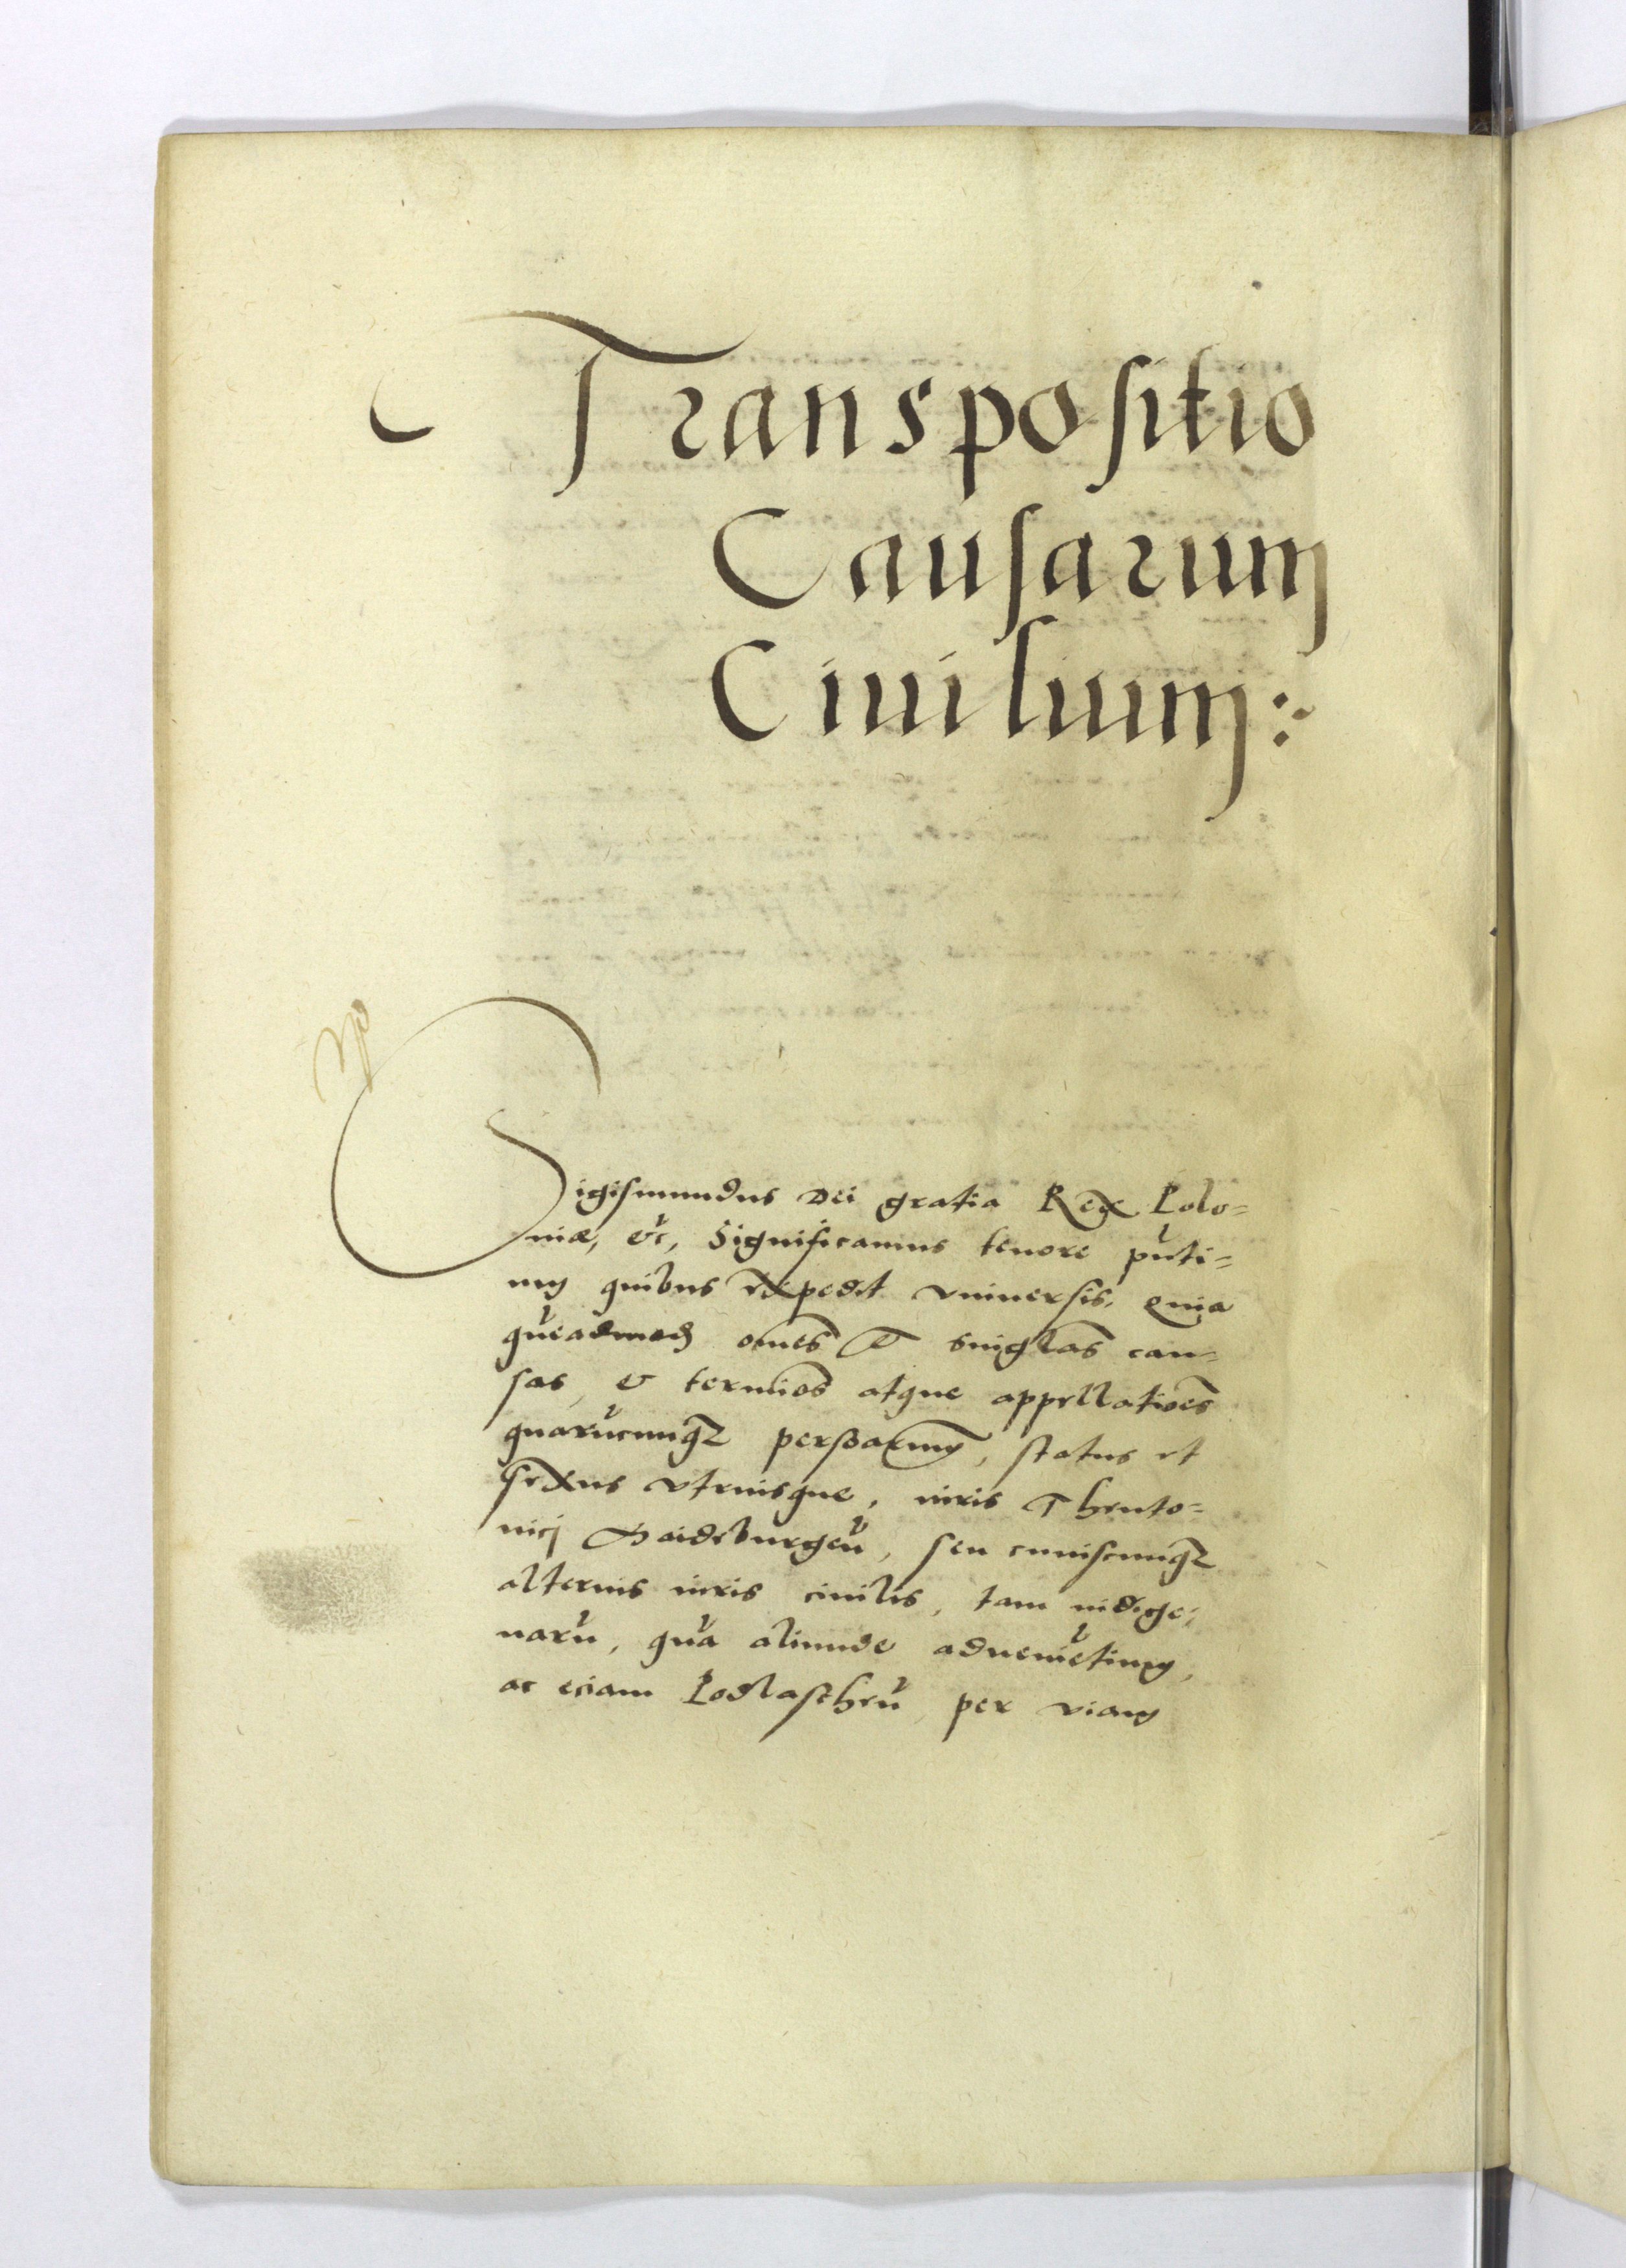 Transpositio
Causarum
Ciuilium:
Sigismundus Dei gratia Rex Polo=
niæ, &c, Significamus tenore pn̄ti=
um quibus expedit vniuersis, Quia
quēadmodū omēs et singlas cau=
sas, & termios atque appellatioēs
quarūcunqʒ persoarum, status et
sexus vtriusque, iuris Theuto=
nicj Maideburgeñ, seu cuiuscunqʒ
alterius iuris ciuilis, tam indige=
narū, quā aliunde adueniētium,
ac eciam Podlascheñ per viam